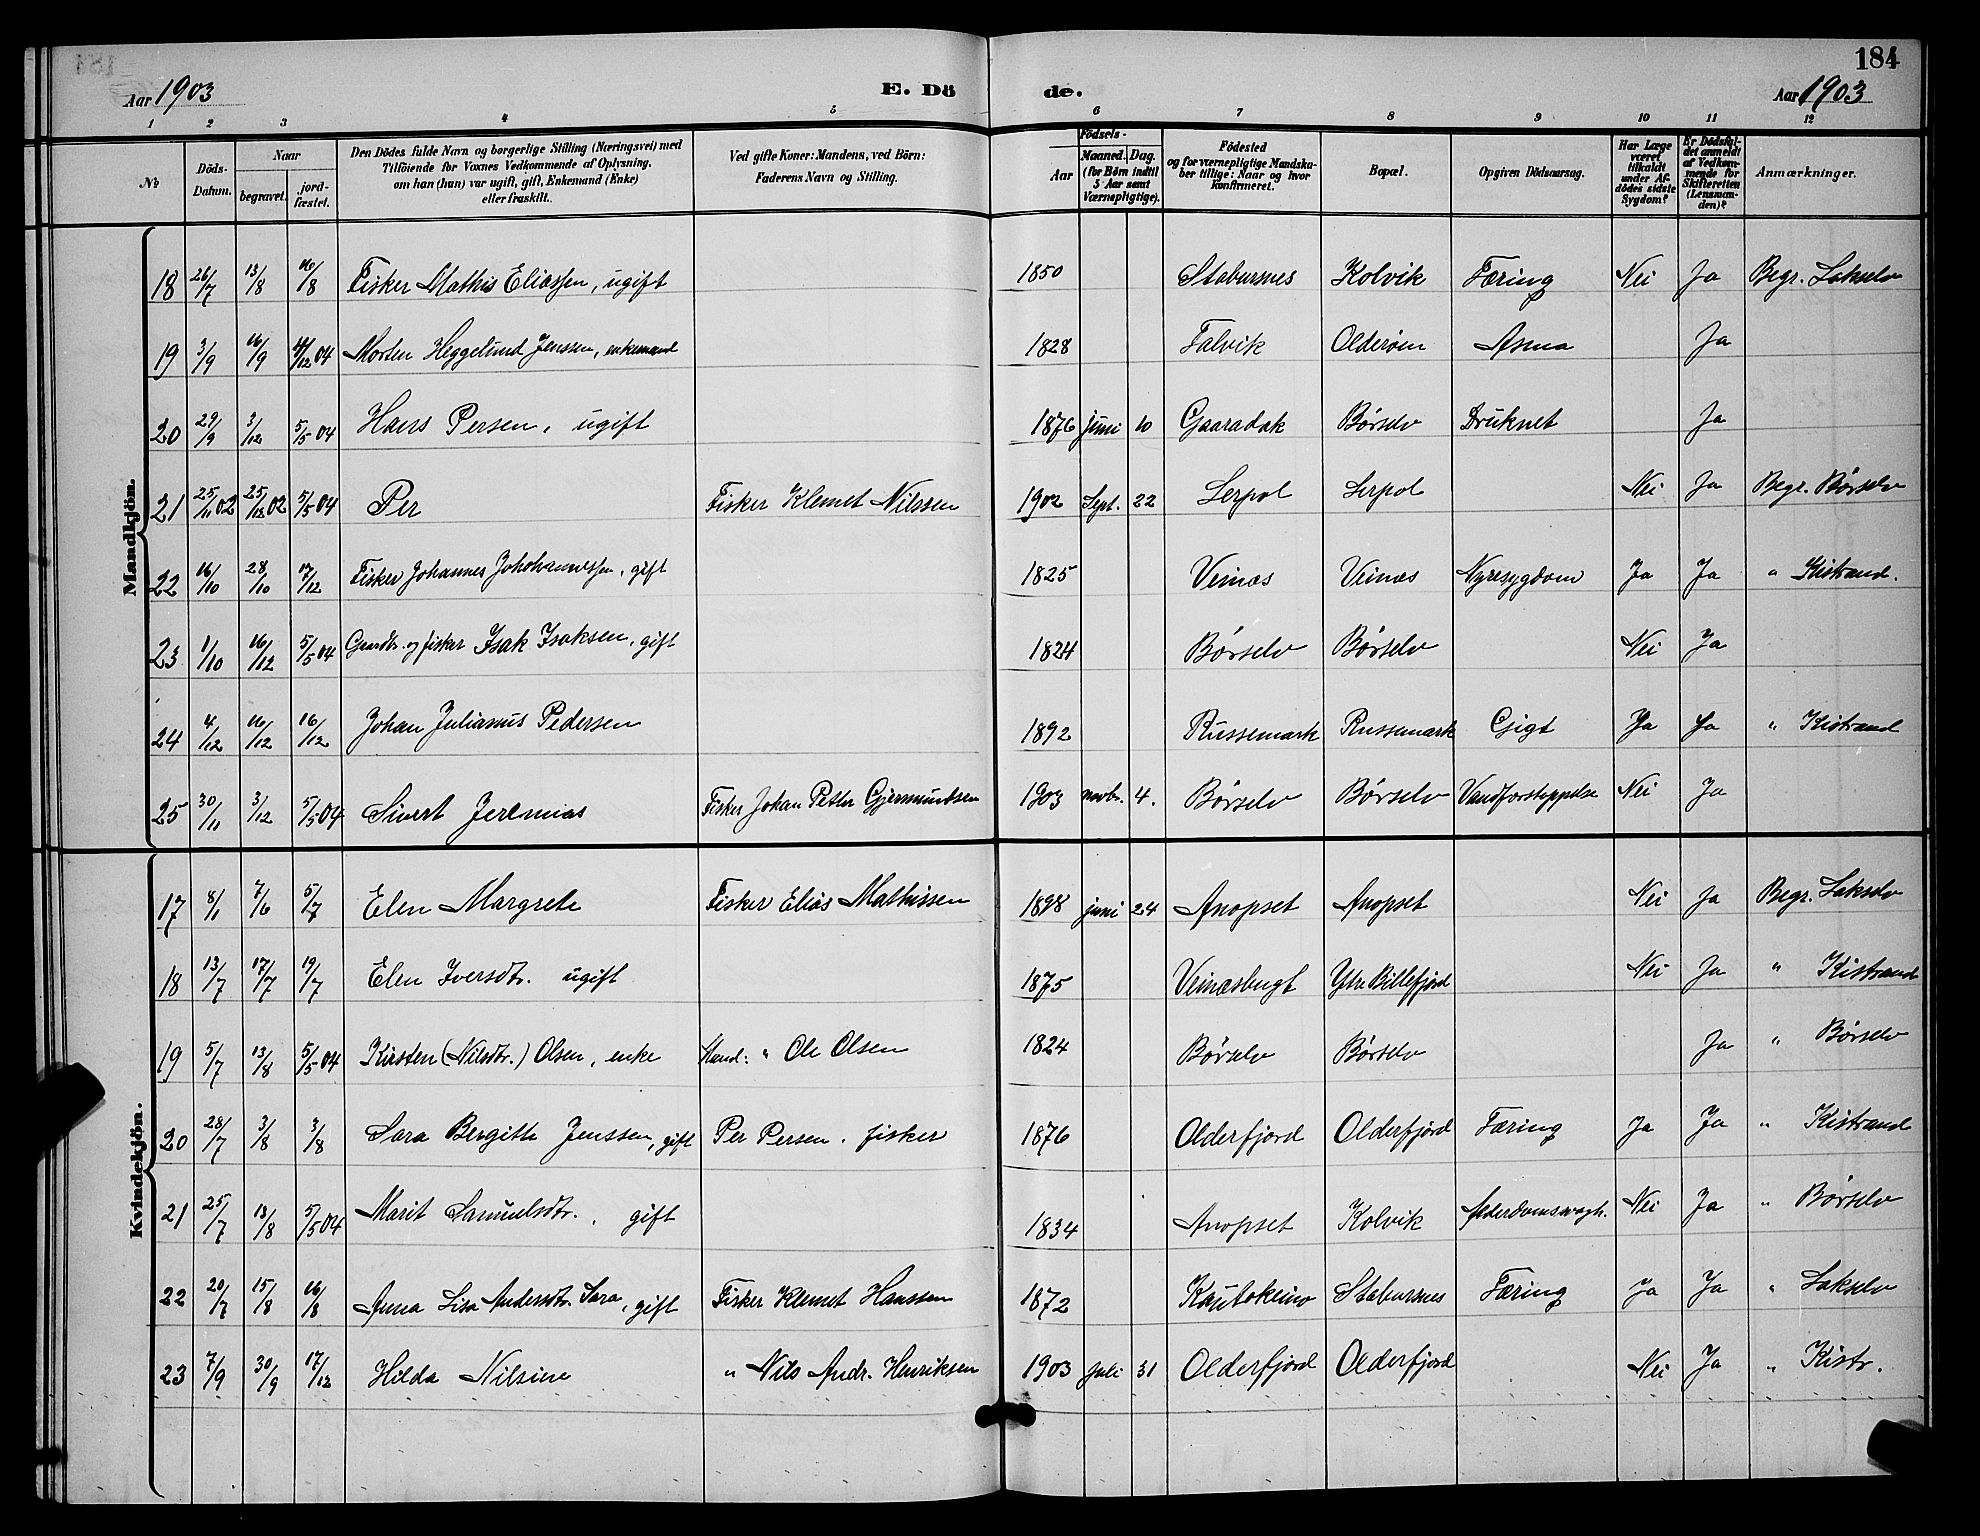 184
Aar 1903 E. Dö de. Aar 1903
1 2 3 4 5 6 7 8 9 10 11 12
№
Döds-Datum.
Naar
begravet.
jord-fæstet.
Den Dödes fulde Navn og borgerlige Stilling (Næringsvei) med
Tilföiende for Voxnes Vedkommende af Oplysning,
om han (hun) var ugift, gift, Enkemand (Enke)
eller fraskilt.
Ved gifte Koner: Mandens, ved Börn:
Faderens Navn og Stilling.
Födsels-
Aar
Maaned. Dag.
(for Börn indtil
5 Aar samt
Værnepligtige).
Födested
og for værnepligtige Mandska-
ber tillige: Naar og hvor
konfirmeret.
Bopæl.
Opgiven Dödsaarsag.
Har Læge
været
tilkaldt
under Af-
dödes sidste
Sygdom?
Er Dödsfal-
det anmeldt
af Vedkom-
mende for
Skifteretten
(Lensman-
den)?
Anmærkninger.
Mandkjön.
18 26/7 13/8 16/8 Fisker Mathis Eliassen, ugift 1850 Stabursnes Kolvik Tæring Nei Ja Begr. Lakselv
19 3/9 16/9 14/12 04 Morten Heggelund Jenssen, enkemand 1828 Talvik Olderøen Asma Ja
20 29/9 3/12 5/5 04 Hans Persen, ugift 1876 juni 10 Gaaradak Børselv Druknet Ja
21 25/11 02 25/12 02 5/5 04 Per Fisker Klemet Nilssen 1902 Sept. 22 Lerpol Lerpol Nei Ja Begr. Børselv
22 16/10 28/10 17/12 Fisker Johannes Johohannessen, gift 1825 Veinæs Veinæs Nyresygdom Ja Ja " Kistrand.
23 1/10 16/12 5/5 04 Gaardbr. og fisker Isak Isaksen, gift 1824 Børselv Børselv Nei Ja
24 4/12 16/12 16/12 Johan Julianus Pedersen 1892 Russemark Russemark Gigt Ja Ja " Kistrand
25 30/11 3/12 5/5 04 Sivert Jeremias Fisker Johan Petter Gjermundsen 1903 novbr. 4. Børselv Børselv Vandforstoppelse Nei Ja
Kvindekjön.
17 8/1 7/6 5/7 Elen Margrete Fisker Elias Mathissen 1898 juni 24 Anopset Anopset Nei Ja Begr. Lakselv
18 13/7 17/7 19/7 Elen Iversdtr. ugift 1875 Veinæsbugt Ytre Billefjord Nei Ja " Kistrand
19 5/7 13/8 5/5 04 Kirsten (Nilsdtr.) Olsen, enke Mand: " Ole Olsen 1824 Børselv Børselv Ja " Børselv
20 28/7 3/8 3/8 Sara Bergitte Jenssen, gift Per Persen. fisker 1876 Olderfjord Olderfjord Tæring Ja Ja " Kistrand
21 25/7 13/8 5/5 04 Marit Samuelsdtr., gift 1834 Anopset Kolvik Alderdomssvagh. Nei Ja " Børselv
22 20/7 15/8 16/8 Anna Lisa Andersdtr. Sara, gift Fisker Klemet Hanssen 1872 Kautokeino Stabursnes Tæring Ja Ja " Lakselv
23 7/9 30/9 17/12 Hilda Nilsine " Nils Andr. Henriksen 1903 Juli 31 Olderfjord Olderfjord Nei Ja " Kistr.